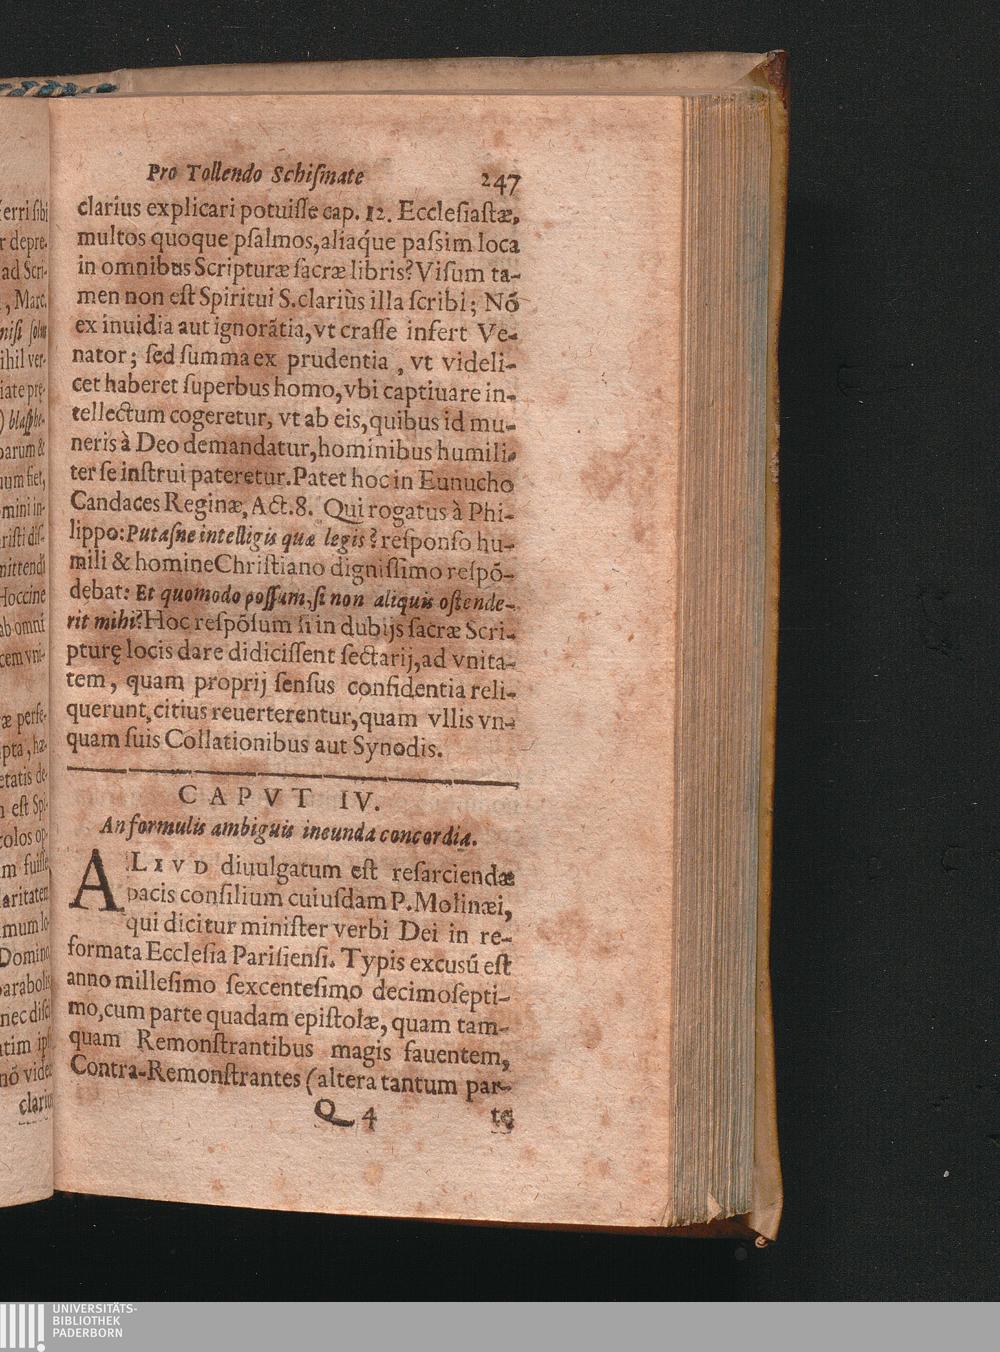 Pro Tollendo Schiſmate 247
clarius explicari potuiſſe cap. 12. Eccleſiaſtæ,
multos quoque pſalmos, aliaq́ue paſsim loca
in omnibus Scripturæ ſacræ libris? Viſum ta-
men non eſt Spiritui S. clariùs illa ſcribi; Nō
ex inuidia aut ignorātia, vt craſſe infert Ve-
nator; ſed ſumma ex prudentia, vt videli-
cet haberet ſuperbus homo, vbi captiuare in-
tellectum cogeretur, vt ab eis, quibus id mu-
neris à Deo demandatur, hominibus humili-
ter ſe inſtrui pateretur. Patet hoc in Eunucho
Candaces Reginæ, Act. 8. Qui rogatus à Phi-
lippo: Putaſne intelligis quæ legis? reſponſo hu-
mili & homine Chriſtiano digniſſimo reſpō-
debat: Et quomodo poſſum, ſi non aliquis oſtende-
rit mihi? Hoc reſpōſum ſi in dubijs ſacræ Scri-
pturę locis dare didiciſſent ſectarij, ad vnita-
tem, quam proprij ſenſus confidentia reli-
querunt, citius reuerterentur, quam vllis vn-
quam ſuis Collationibus aut Synodis.
CAPVT IV.
An formulis ambiguis ineunda concordia.
ALIVD diuulgatum eſt reſarciendæ
pacis conſilium cuiuſdam P. Molinæi,
qui dicitur miniſter verbi Dei in re-
formata Eccleſia Pariſienſi. Typis excusū eſt
anno milleſimo ſexcenteſimo decimoſepti-
mo, cum parte quadam epiſtolæ, quam tam-
quam Remonſtrantibus magis fauentem,
Contra-Remonſtrantes (altera tantum par-
Q 4 te
erri ſibi
r depre-
ad Scri-
, Marc.
niſi ſolus
ihil ver-
iate prę-
) blaſphe-
parum &
um fiet,
mini in-
riſti diſ-
mittendi
Hoccine
ab omni
cem vni-
æ perfe-
pta, hæ-
etatis de-
eſt Spi-
colos op-
m fuiſſe
laritatem
mum lo-
Domino
parabolis
nec diſci
tim ip
nō vide
clarius
UNIVERSITÄTS-
BIBLIOTHEK
PADERBORN